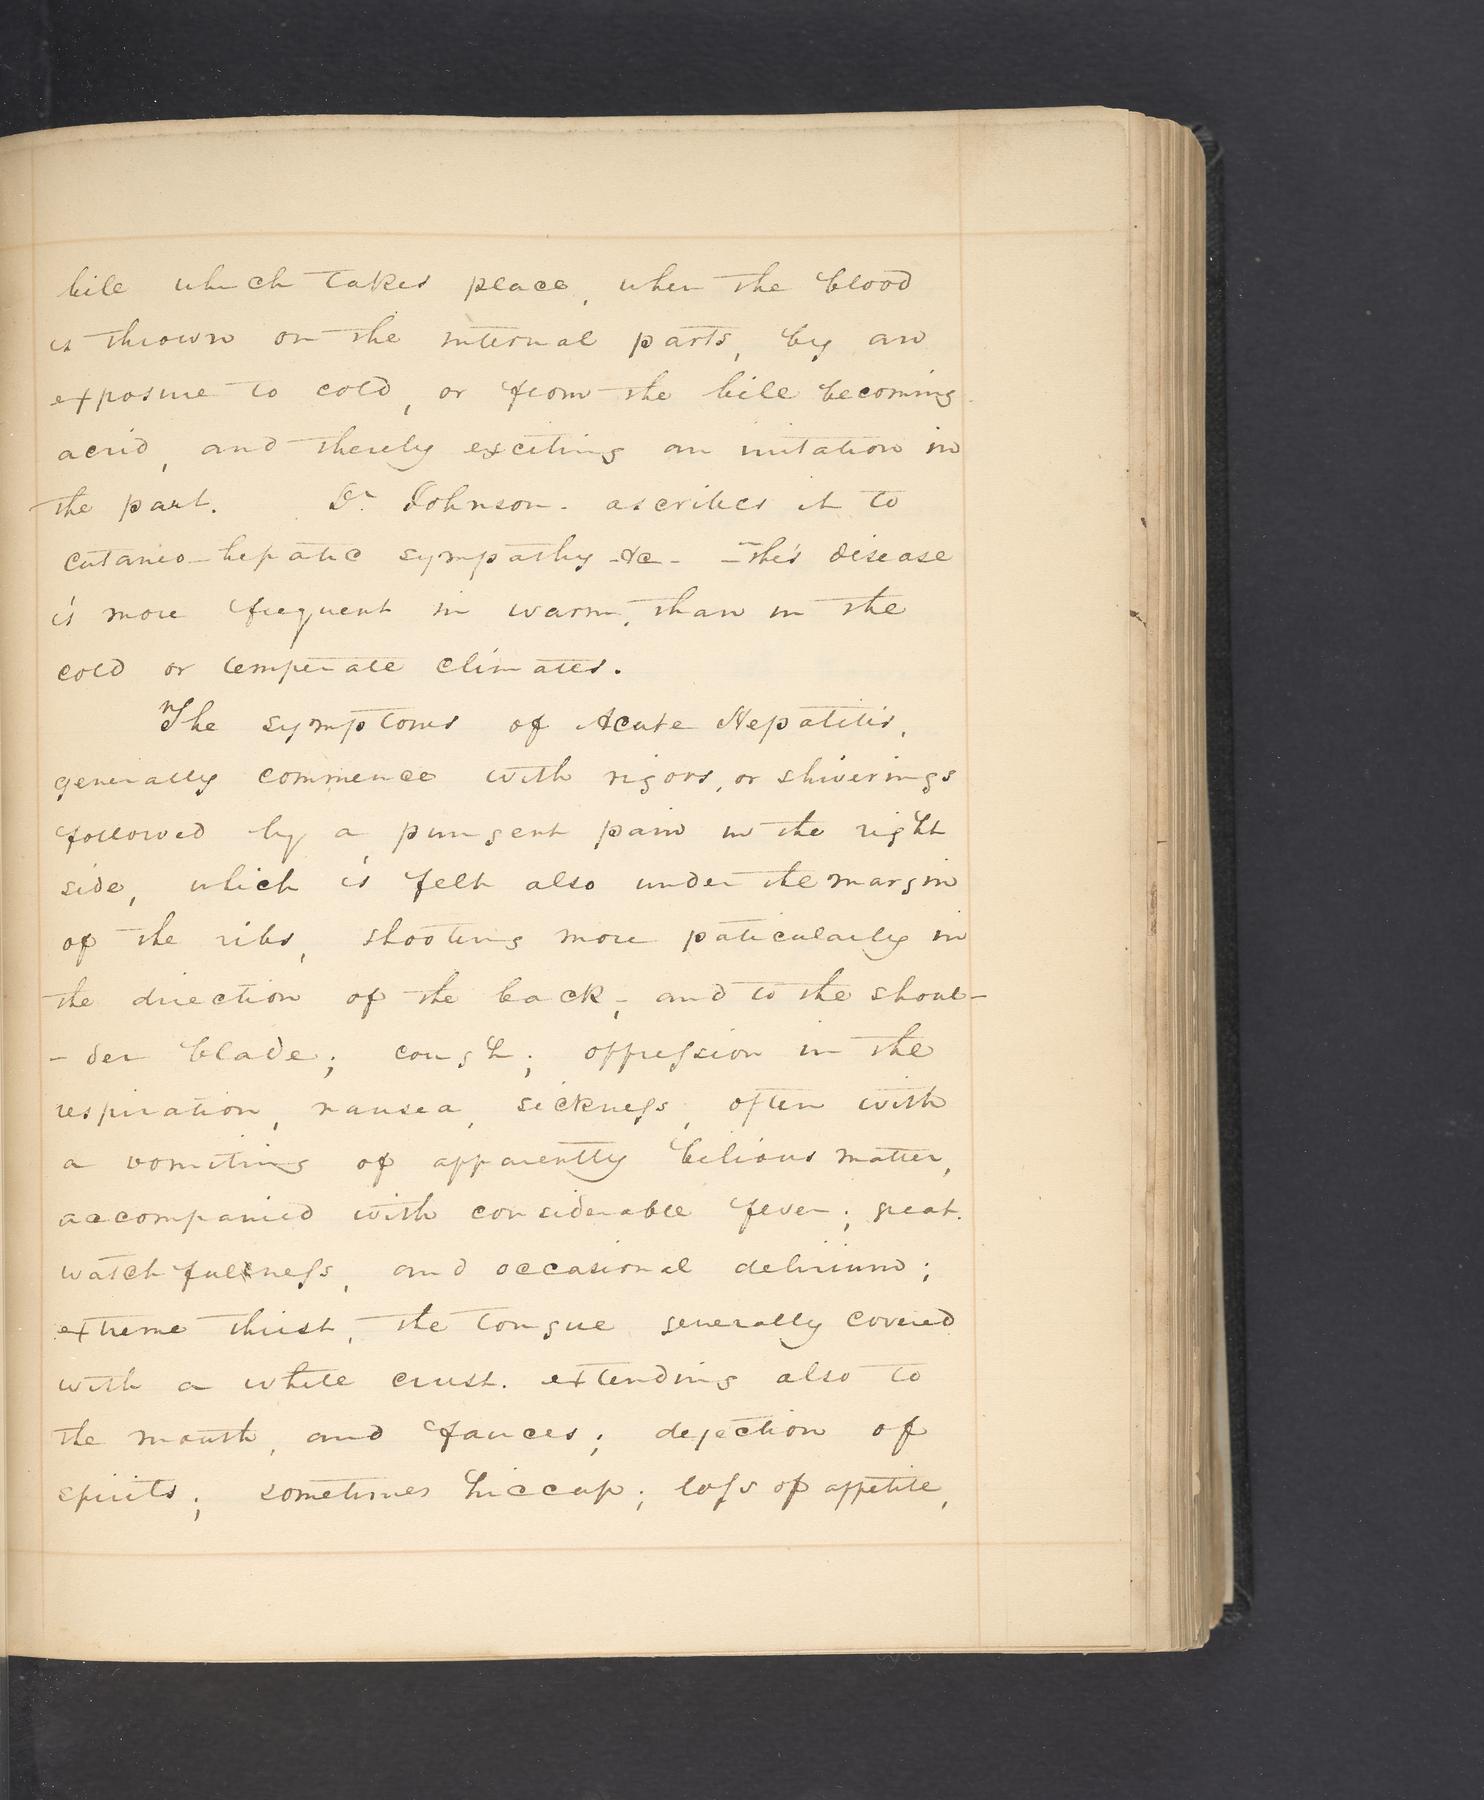 bile which takes place, when the blood
is thrown on the internal parts, by an
exposure to cold, or from the bile becoming
acrid, and thereby exciting an irritation in
the part. Dr. Johnson. ascribes it to
cutaneo-hepatic sympathy &c - This disease
is more frequent in warm, than in the
cold or temperate climates.
The symptoms of Acute Hepatitis,
generally commence with rigors, or shiverings
followed by a pungent pain in the right
side, which is felt also under the margin
of the ribs, shooting more paticularly in
the direction of the back; and to the shoul-
-der blade; cough; oppression in the
respiration, nausea, sickness, often with
a vomiting of apparently bilious matter,
accompanied with considerable fever; great.
watchfullness, and occasional delirium;
extreme thirst, the tongue generally covered
with a white crust. extending also to
the mouth, and fauces; dejection of
spirits; sometimes hiccup; loss of appetite,